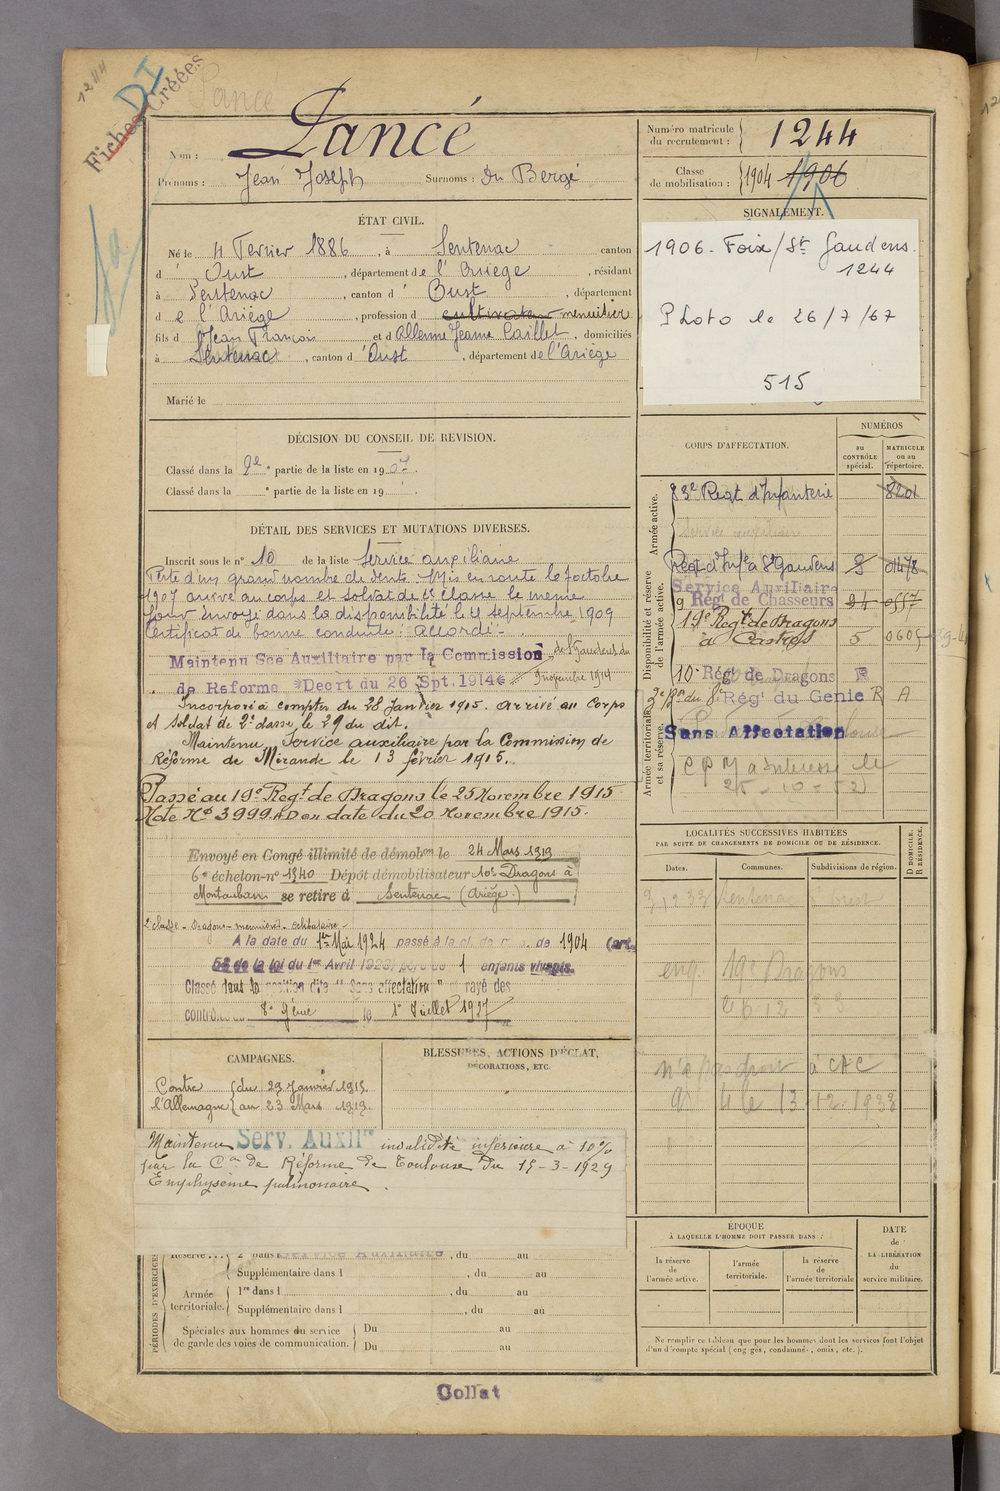 1244
DI
Fiches Créées
Lancé
Nom : Lancé
Prénoms : Jean Joseph Surnoms : Du Bergé
Numéro matricule du recrutement : 1244
Classe de mobilisation : 1904 1906
ÉTAT CIVIL.
Né le 4 Fevrier 1886, à Sentenac canton
d' Oust, département de l'Ariège, résidant
à Sentenac, canton d' Oust, département
de l'Ariège, profession d cultivateur menuisier
fils d Jean François et d Allenne Jeanne Caillet, domiciliés
à Sentenac, canton d'Oust, département de l'Ariège
Marié le
SIGNALEMENT.
1906. Foix/St Gaudens.
1244
Photo le 26/7/67
515
DÉCISION DU CONSEIL DE REVISION.
Classé dans la 2e partie de la liste en 1907.
Classé dans la partie de la liste en 19
DÉTAIL DES SERVICES ET MUTATIONS DIVERSES.
Inscrit sous le n° 10 de la liste Service auxiliaire
Perte d'un grand nombre de dents. Mis en route le 7 octobre
1907 arrivé au corps et soldat de 2e classe le même
jour. Envoyé dans la disponibilité le 25 septembre 1909
Certificat de bonne conduite : Accordé.
Maintenu Sce Auxiliaire par la Commission de St Gaudens du
de Reforme Décrt du 26 Spt. 1914
Incorporé à compter du 28 Janvier 1915. arrivé au Corps
et soldat de 2e classe, le 29 du dit.
Maintenu Service auxiliaire par la Commission de
Réforme de Mirande le 13 février 1915.
Passé au 19e Regt de Dragons le 25 Novembre 1915
Note N° 3999 AD en date du 20 Novembre 1915.
Envoyé en Congé illimité de démobon le 24 Mars 1919
6e échelon-n° 1340 Dépôt démobilisateur 10e Dragons à
Montauban se retire à Sentenac (Ariège.)
2e classe - Dragons - menuisier - célibataire -
A la date du 1er Mai 1924 passé à la cl. de de 1904 (art.
58 de la loi du 1er Avril 1923, père de 1 enfants vivants.
Classé dans la position dite "Sans affectation" et rayé des
contrôles du 8e génie le 1er Juillet 1937
CORPS D'AFFECTATION.
NUMÉROS
au CONTRÔLE spécial.
MATRICULE ou au répertoire.
Armée active.
83e Regt d'Infanterie 8201
Service auxiliaire
Disponibilité et réserve de l'armée active.
Regt d'Infie St Gaudens 8 01478
Service Auxiliaire
9 Régt de Chasseurs 24 0557
19e Regt de Dragons
à Castres 5
10e Régt de Dragons R
Armée territoriale et sa réserve.
8e Régt du Genie R A
Sans Affectation
25-10-52
LOCALITÉS SUCCESSIVES HABITÉES
PAR SUITE DE CHANGEMENTS DE DOMICILE OU DE RÉSIDENCE.
Dates. Communes. Subdivisions de région.
D DOMICILE. R RÉSIDENCE.
Sentenac d'Oust
19e Dragons
n'a pas droit à CAC
13-12-1938
CAMPAGNES.
Contre l'Allemagne du 29 Janvier 1915.
au 23 Mars 1919.
BLESSURES, ACTIONS D'ÉCLAT,
DÉCORATIONS, ETC.
Maintenu Serv. Auxilre invalidité inférieure à 10%
par la Con de Réforme de Toulouse du 15-3-1929
Emphysème pulmonaire.
PÉRIODES D'EXERCICES
Réserve... 2e dans Service Auxiliaire, du au
Supplémentaire dans l , du au
Armée territoriale. 1re dans l , du au
Supplémentaire dans l , du au
Spéciales aux hommes du service de garde des voies de communication. Du au
Du au
ÉPOQUE
À LAQUELLE L'HOMME DOIT PASSER DANS :
la réserve de l'armée active.
l'armée territoriale.
la réserve de l'armée territoriale
DATE de LA LIBÉRATION du service militaire.
Ne remplir ce tableau que pour les hommes dont les services font l'objet
d'un décompte spécial (engagés, condamnés, omis, etc.).
Collat